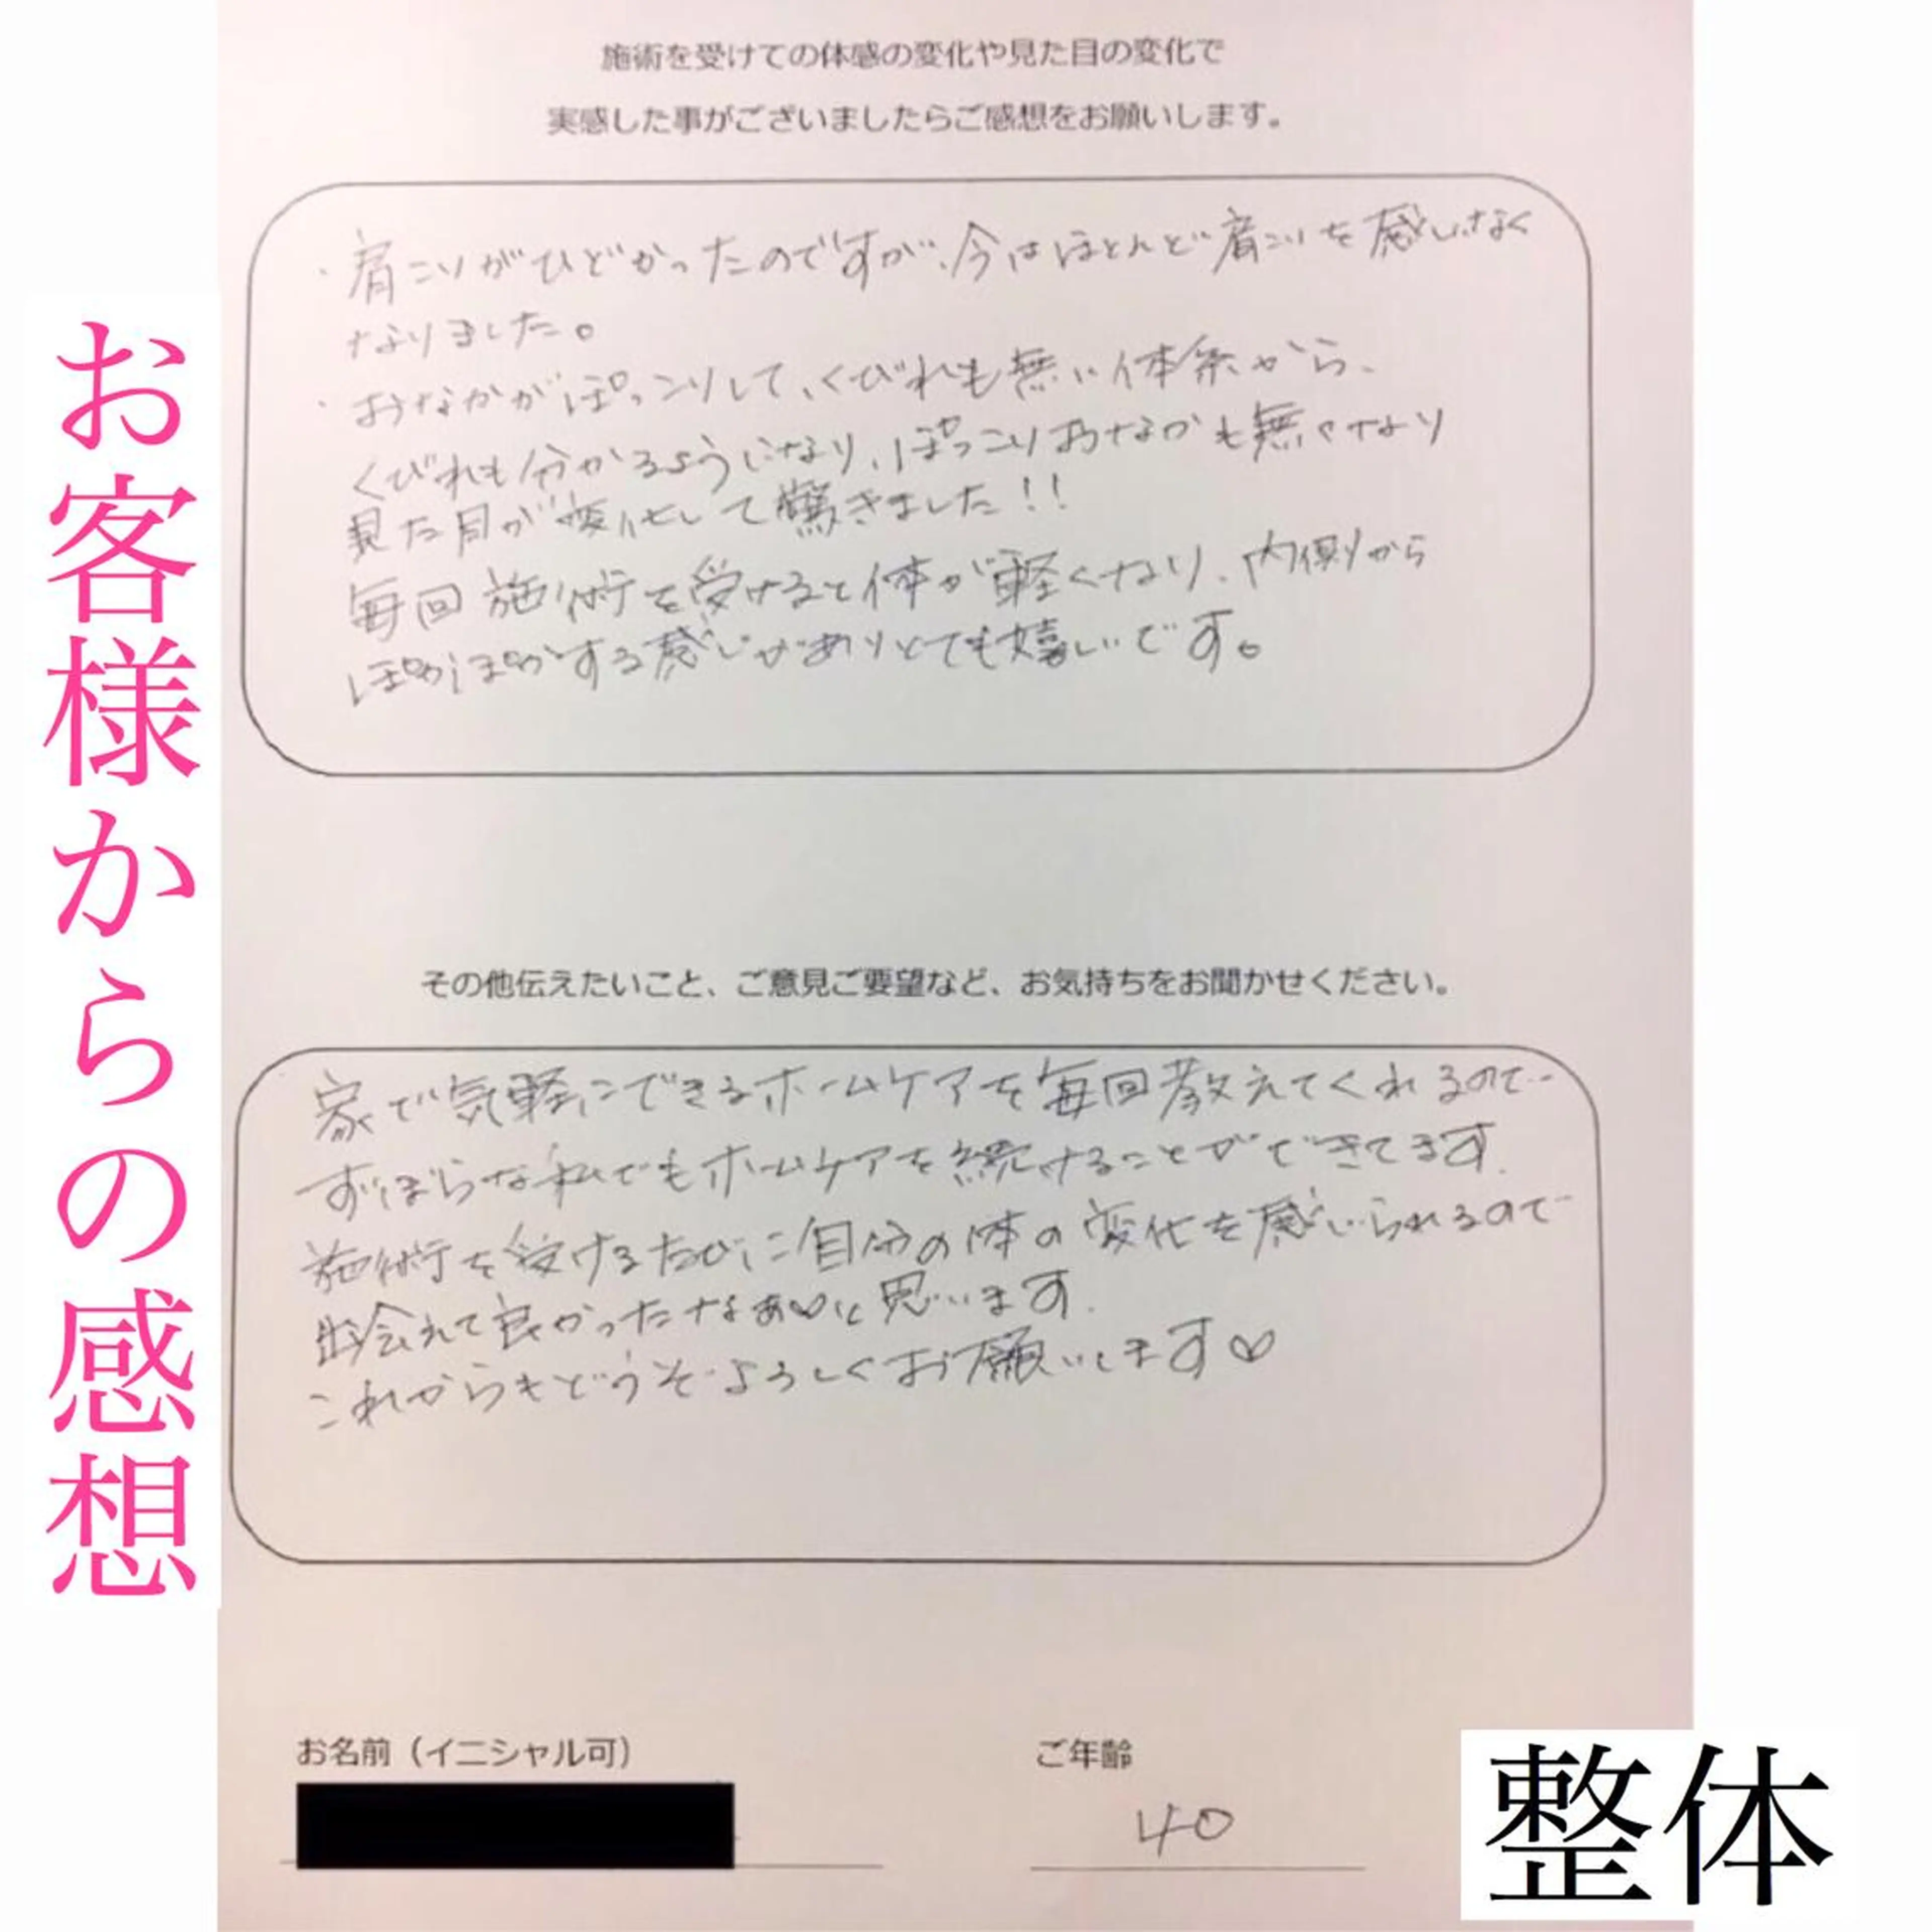 お客様からの感想
施術を受けての体感の変化や見た目の変化で
実感した事がございましたらご感想をお願いします。
・肩こりがひどかったのですが、今はほとんど肩こりを感じなく
なりました。
・おなかがぽっこりして、くびれも無い体系から、
くびれも分かるようになり、ぽっこりおなかも無くなり
見た目が変化して驚きました!!
毎回施術を受けると体が軽くなり、内側から
ぽかぽかする感じがありとても嬉しいです。
その他伝えたいこと、ご意見ご要望など、お気持ちをお聞かせください。
家で気軽にできるホームケアを毎回教えてくれるので
ずぼらな私でもホームケアを続けることができてます.
施術を受けるたびに自分の体の変化を感じられるので
出会えて良かったなぁ♡と思います.
これからもどうぞよろしくお願いします♡
お名前（イニシャル可）
ご年齢
40
整体